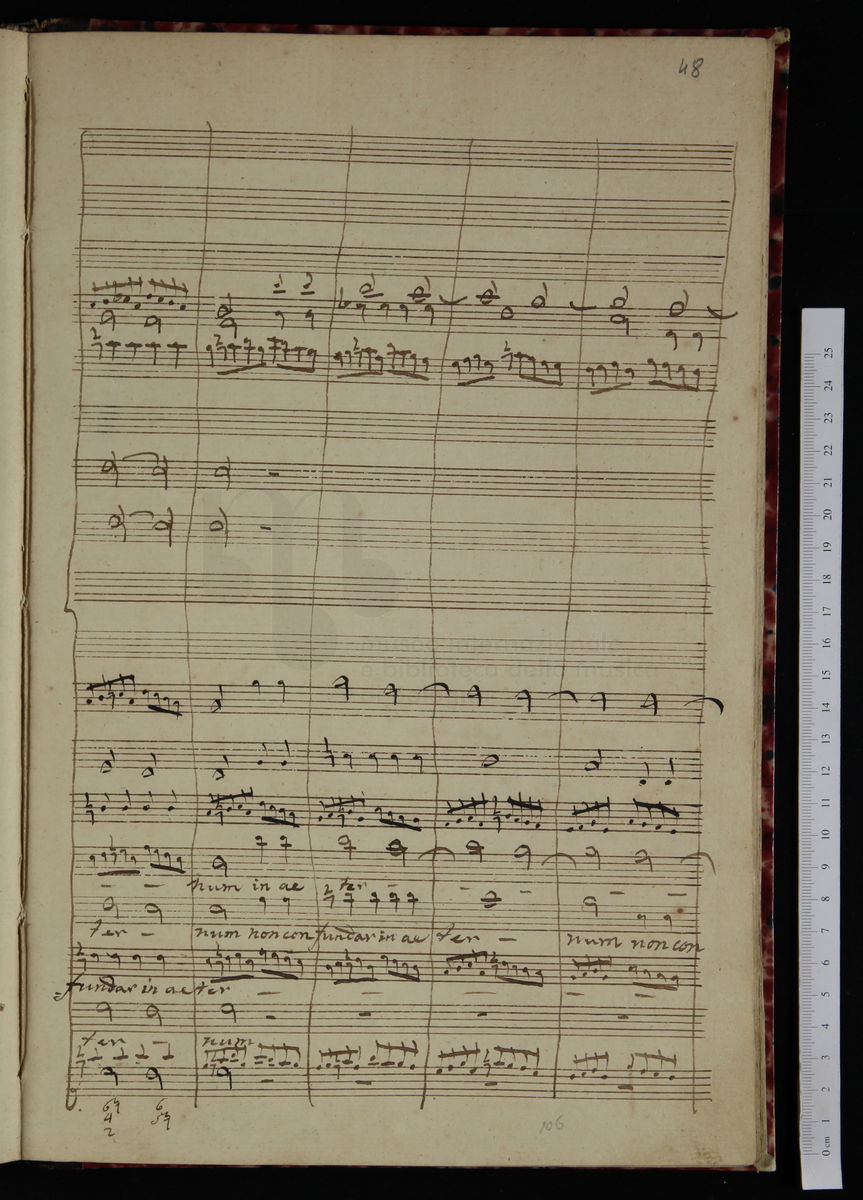 48
- - num in ae ter - - - - -
ter - num non con fundar in ae ter - num non con
fundar in ae ter - - - - -
ter - num
6♮ 6
4 5♮
2
106
museo internazionale
e biblioteca della musica
25
24
23
22
21
20
19
18
17
16
15
14
13
12
11
10
9
8
7
6
5
4
3
2
1
0 cm